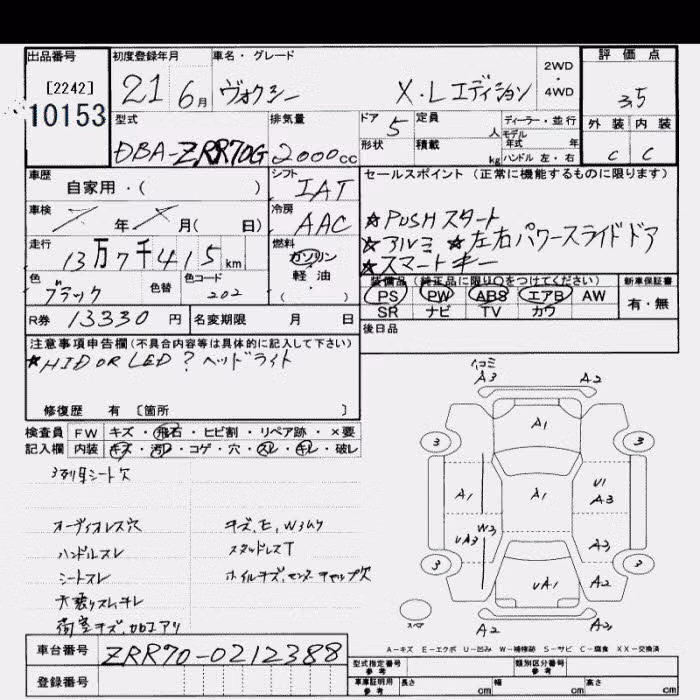 出品番号 初度登録年月 車名・グレード 2WD・4WD 評価点
[2242] 21 6月 ヴォクシー X・Lエディション 3.5
10153 型式 排気量 ドア 5 定員 人 ディーラー・並行 外装 内装
DBA-ZRR70G 2000cc 形状 積載 kg モデル年式 年 ハンドル 左・右 C C
車歴 自家用・( ) シフト IAT セールスポイント (正常に機能するものに限ります)
車検 年 月( 日) 冷房 AAC ★PUSHスタート
走行 13万7千415km 燃料 ガソリン・軽油・( ) ★アルミ ★左右パワースライドドア
★スマートキー
色 ブラック 色替 色コード 202 装備品(純正品に限り○をつけてください) 新車保証書
PS PW ABS エアB AW 有・無
SR ナビ TV カワ
R券 13330円 名変期限 月 日 後日品
注意事項申告欄(不具合内容等は具体的に記入して下さい)
★HID OR LED? ヘッドライト
修復歴 有 [箇所 ]
検査員 FW キズ・飛石・ヒビ割・リペア跡・×要
記入欄 内装 キズ・汚レ・コゲ・穴・スレ・キレ・破レ
3列目シート欠
オーディオレス穴 キズ,E,W3ムケ
ハンドルスレ スタッドレスT
シートスレ ホイルキズ,センターキャップ欠
天張りスレ,キレ
荷室キズ,加工アリ
イコミ
A3 A2
A1
3 3
A1 A1 U1
A3
UA3 W3 A2
3 3
UA1 A2
スペア A2 A2
A-キズ E-エクボ U-凹み W-補修跡 S-サビ C-腐食 XX-交換済
車台番号 ZRR70-0212388
登録番号
型式指定番号 参考 類別区分番号 参考
車庫証明用 参考 長さ cm 幅 cm 高さ cm